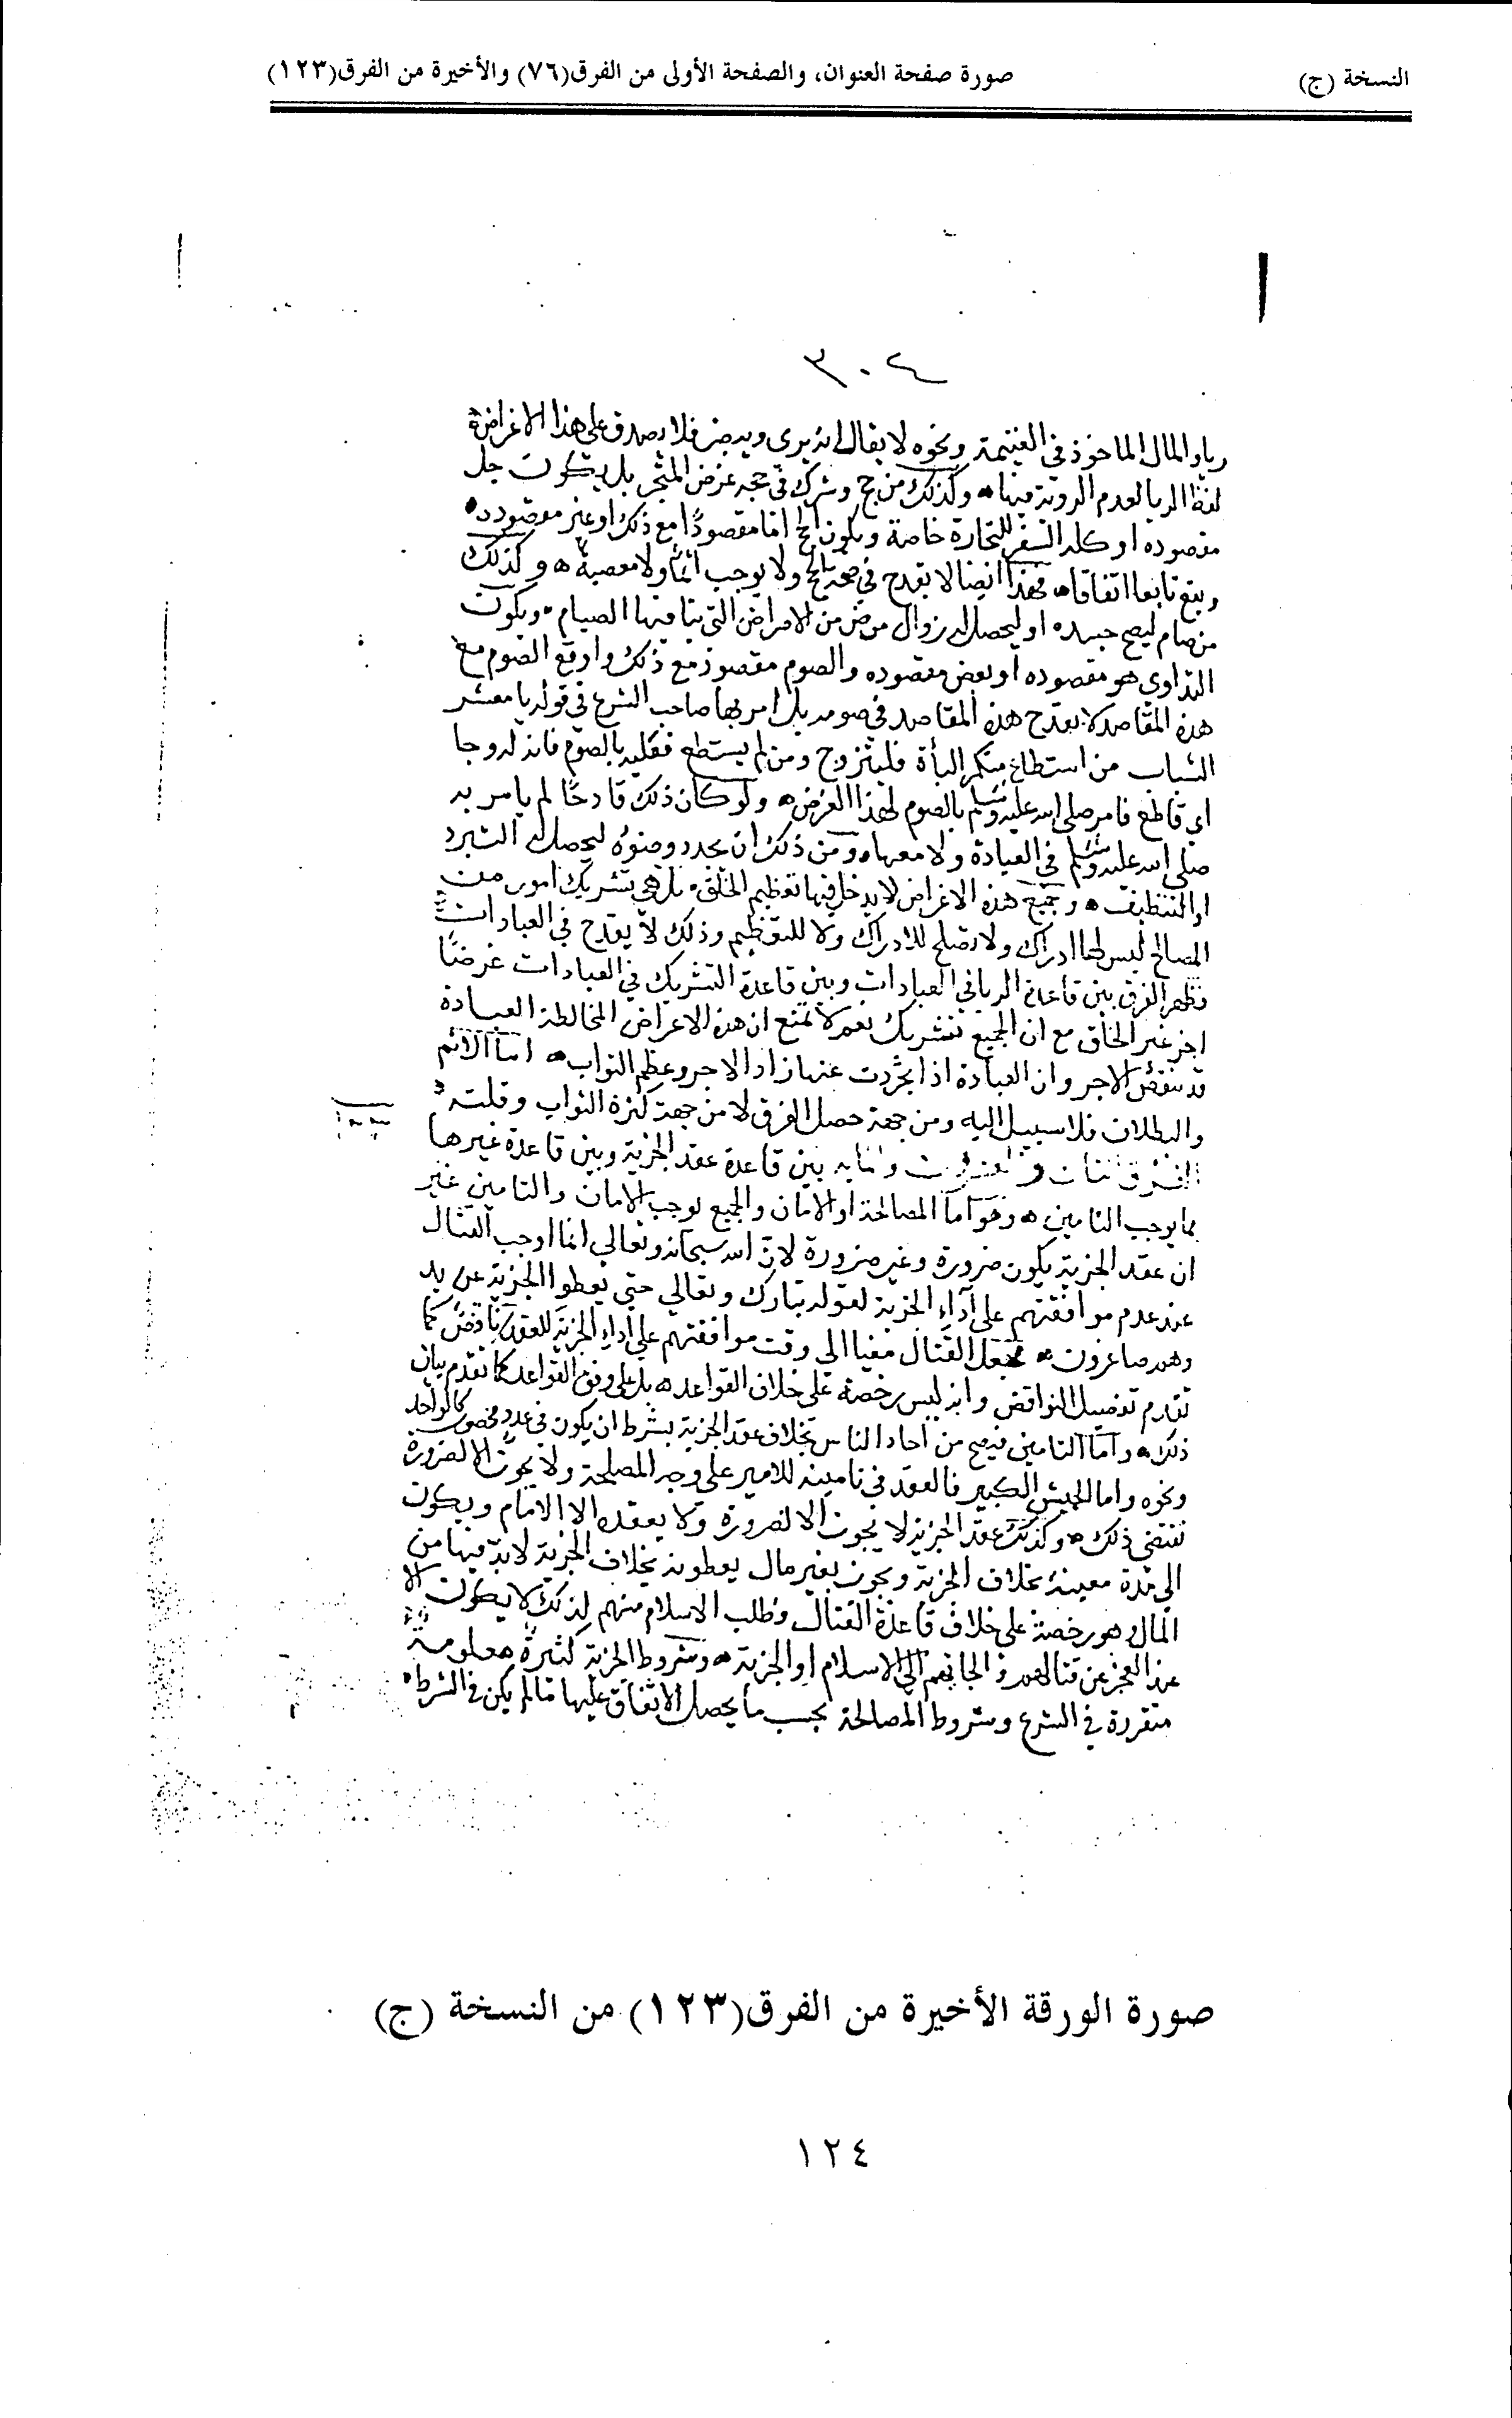 النسخة (ج)
صورة صفحة العنوان، والصفحة الأولى من الفرق(٧٦) والأخيرة من الفرق(١٢٣)
٣٠٤
رياء والمال الماخوذ في الغنيمة ونحوه لا يقال انه يرى ويبصر فلا يصدق على هذا الاغراض
لفظ الريا لعدم الروية فيها وكذلك من حج وشرك في حجه غرض المتجر بل يكون جل
مقصوده او كله السفر للتجارة خاصة ويكون الحج اما مقصودًا مع ذلك او غير مقصود
ويقع تابعا اتفاقا فهذا ايضا لا يقدح في صحة الحج ولا يوجب اثمًا ولا معصية وكذلك
من صام ليصح جسده او ليحصل له زوال مرض من الامراض التي ينافيها الصيام ويكون
التداوي هو مقصوده او بعض مقصوده والصوم مقصود مع ذلك واوقع الصوم مع
هذه المقاصد لا يقدح هذه المقاصد في صومه بل امر بها صاحب الشرع في قوله يا معشر
الشباب من استطاع منكم البأة فليتزوج ومن لم يستطع فعليه بالصوم فانه له وجا
اي قاطع فامر صلى الله عليه وسلم بالصوم لهذا الغرض ولو كان ذلك قادحًا لم يامر به
صلى الله عليه وسلم في العبادة ولا معها ومن ذلك ان يجدد وضوءه ليحصل له التبرد
او التنظيف وجميع هذه الاغراض لا يدخل فيها تعظيم الخلق بل هي تشريك امور من
المصالح ليس لها ادراك ولا تصلح للادراك ولا للتعظيم وذلك لا يقدح في العبادات
فظهر الفرق بين قاعدة الريا في العبادات وبين قاعدة التشريك في العبادات غرضًا
اخر غير الخلق مع ان الجميع تشريك نعم لا تمنع ان هذه الاغراض المخالطة العبادة
قد تنقص الاجر وان العبادة اذا تجردت عنها زاد الاجر وعظم الثواب اما الاثم
والبطلان فلا سبيل اليه ومن جهته حصل الفرق لا من جهة كثرة الثواب وقلته
الفرق بين قاعدة عقد الجزية وبين قاعدة غيرها
مما يوجب التامين وهو اما المصالحة او الامان والجميع يوجب الامان والتامين غير
ان عقد الجزية يكون ضرورة وغير ضرورة لان الله سبحانه وتعالى انما اوجب القتال
عند عدم موافقتهم على آداء الجزية لقوله تبارك وتعالى حتى يعطوا الجزية عن يد
وهم صاغرون فجعل القتال مغيا الى وقت موافقتهم على اداء الجزية كما
تقدم تفصيل النواقض وانه ليس رخصة على خلاف القواعد بل على وفق القواعد كما تقدم بيان
ذلك واما التامين فيصح من آحاد الناس بخلاف عقد الجزية بشرط ان يكون في عدد محصور كالواحد
ونحوه واما الجيش الكبير فالعقد في تامينه للامير على وجه المصلحة ولا يجوز الا لضرورة
تقتضي ذلك وكذلك عقد الجزية لا يجوز الا لضرورة ولا يعقده الا الامام ويكون
الى مدة معينة بخلاف الجزية ويجوز بغير مال يعطونه بخلاف الجزية لا بد فيها من
المال وهو رخصة على خلاف قاعدة القتال وطلب الاسلام منهم لذلك لا يكون الا
عند العجز عن قتالهم والجائهم الى الاسلام او الجزية وشروط الجزية كثيرة معلومة
متقررة في الشرع وشروط المصالحة بحسب ما يحصل الاتفاق عليها ما لم يكن في الشرط
صورة الورقة الأخيرة من الفرق(١٢٣) من النسخة (ج)
١٢٤